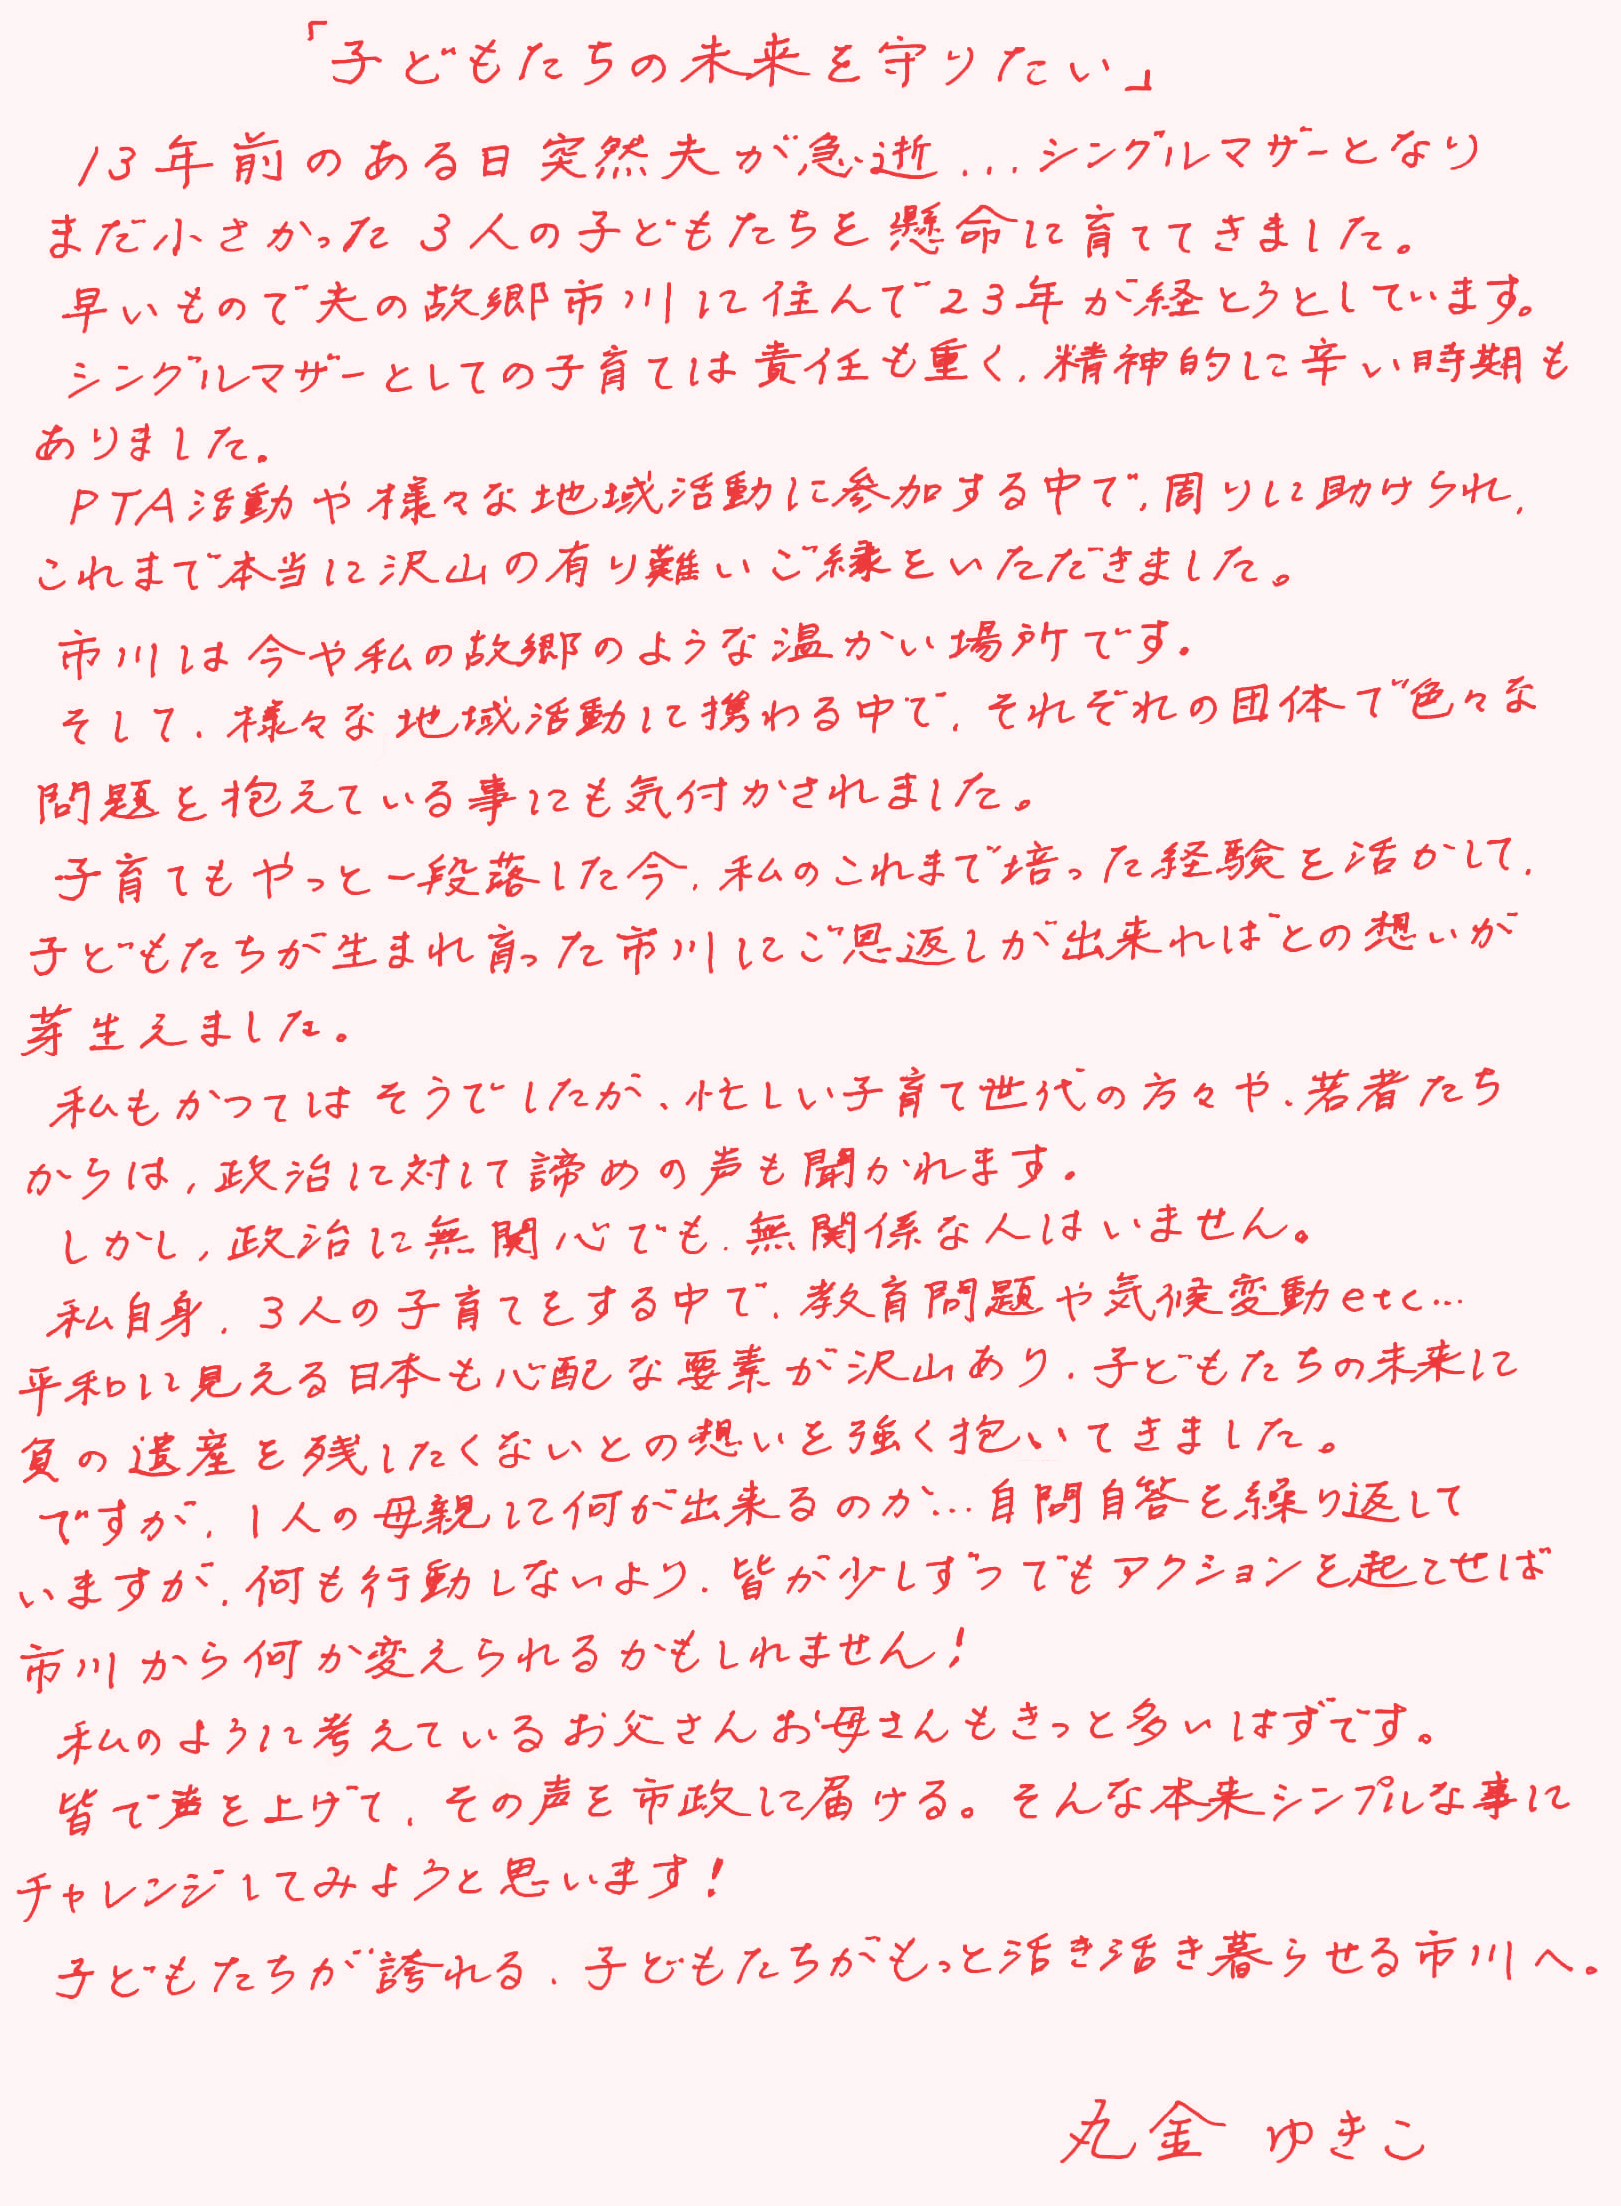 「子どもたちの未来を守りたい」
13年前のある日突然夫が急逝...シングルマザーとなり
まだ小さかった3人の子どもたちを懸命に育ててきました。
早いもので夫の故郷市川に住んで23年が経とうとしています。
シングルマザーとしての子育ては責任も重く、精神的に辛い時期も
ありました。
PTA活動や様々な地域活動に参加する中で、周りに助けられ、
これまで本当に沢山の有り難いご縁をいただきました。
市川は今や私の故郷のような温かい場所です。
そして、様々な地域活動に携わる中で、それぞれの団体で色々な
問題を抱えている事にも気付かされました。
子育てもやっと一段落した今、私のこれまで培った経験を活かして、
子どもたちが生まれ育った市川にご恩返しが出来ればとの想いが
芽生えました。
私もかつてはそうでしたが、忙しい子育て世代の方々や、若者たち
からは、政治に対して諦めの声も聞かれます。
しかし、政治に無関心でも、無関係な人はいません。
私自身、3人の子育てをする中で、教育問題や気候変動etc...
平和に見える日本も心配な要素が沢山あり、子どもたちの未来に
負の遺産を残したくないとの想いを強く抱いてきました。
ですが、1人の母親に何が出来るのか...自問自答を繰り返して
いますが、何も行動しないより、皆が少しずつでもアクションを起こせば
市川から何か変えられるかもしれません!
私のように考えているお父さんお母さんもきっと多いはずです。
皆で声を上げて、その声を市政に届ける。そんな本来シンプルな事に
チャレンジしてみようと思います!
子どもたちが誇れる、子どもたちがもっと活き活き暮らせる市川へ。
丸金 ゆきこ